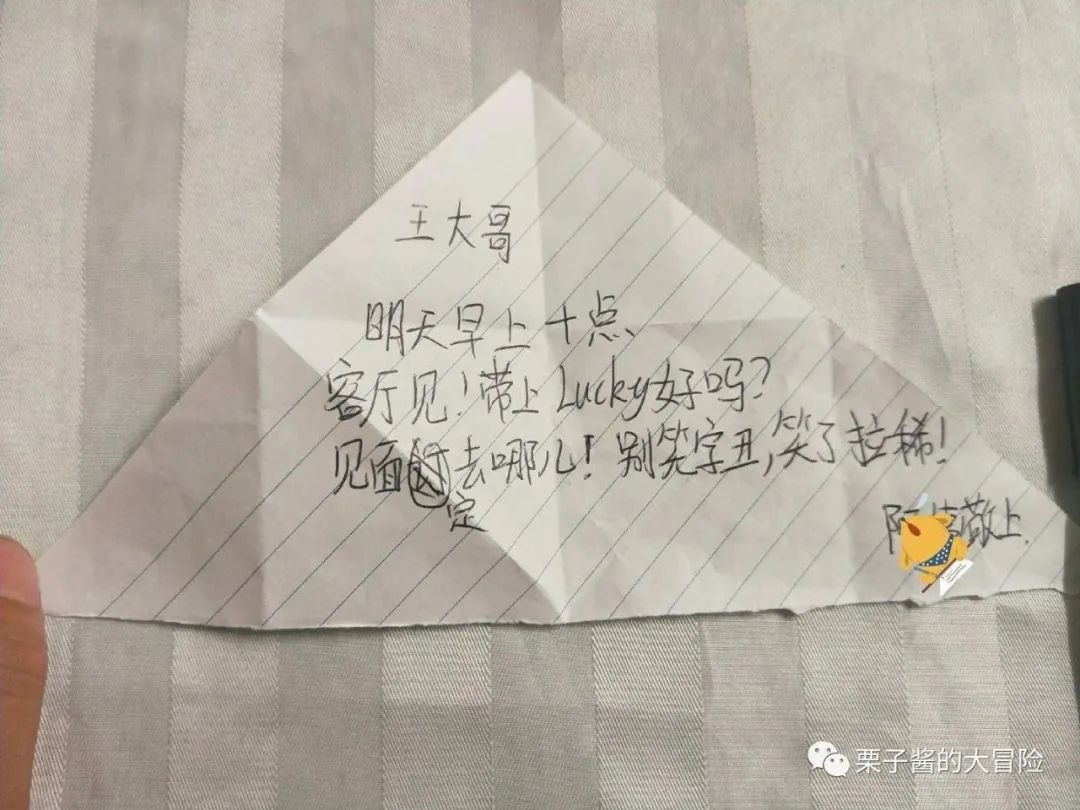 王大哥
明天早上十点、
客厅见！带上Lucky好吗？
见面定去哪儿！别笑字丑，笑了拉稀！
敬上.
栗子酱的大冒险